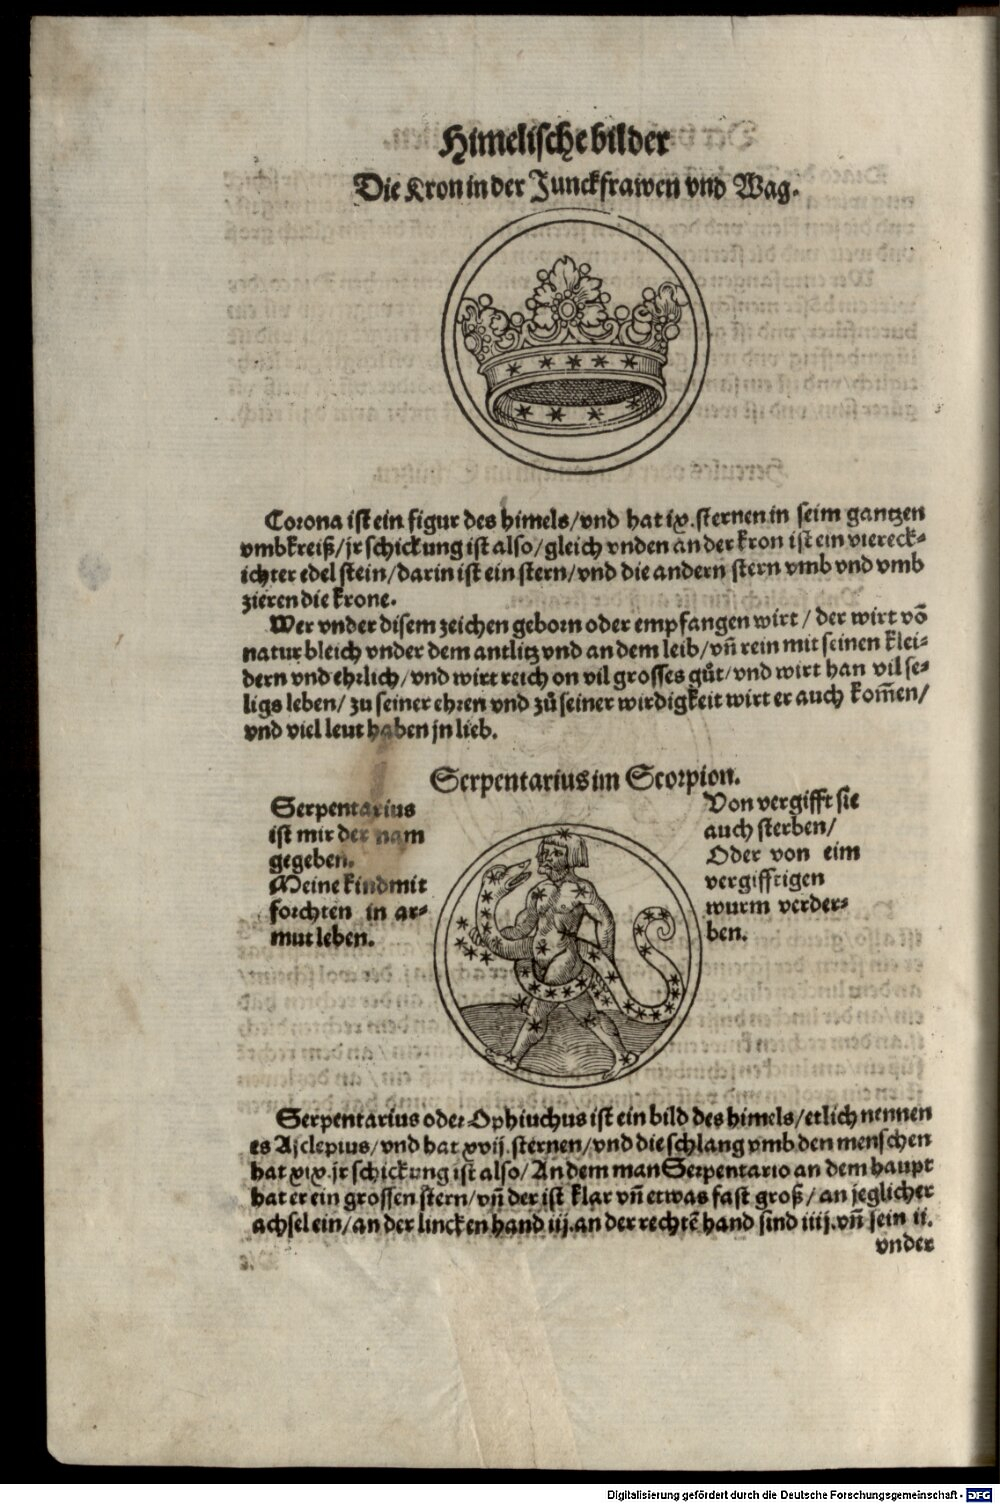 Himelische bilder
Die Kron in der Junckfrawen vnd Wag.
Corona ist ein figur des himels/vnd hat ix.sternen in seim gantzen
vmbkreiß/jr schickung ist also/gleich vnden an der kron ist ein viereck-
ichter edel stein/darin ist ein stern/vnd die andern stern vmb vnd vmb
zieren die krone.
Wer vnder disem zeichen geborn oder empfangen wirt/der wirt võ
natur bleich vnder dem antlitz vnd an dem leib/vñ rein mit seinen klei-
dern vnd ehrlich/vnd wirt reich on vil grosses gůt/vnd wirt han vil se-
ligs leben/zu seiner ehren vnd zů seiner wirdigkeit wirt er auch kom̃en/
vnd viel leut haben jn lieb.
Serpentarius im Scorpion.
Serpentarius
ist mir der nam
gegeben.
Meine kind mit
forchten in ar-
mut leben.
Von vergifft sie
auch sterben/
Oder von eim
vergifftigen
wurm verder-
ben.
Serpentarius oder Ophiuchus ist ein bild des himels/etlich nennen
es Asclepius/vnd hat xvij.sternen/vnd die schlang vmb den menschen
hat xix.jr schickung ist also/An dem man Serpentario an dem haupt
hat er ein grossen stern/vñ der ist klar vñ etwas fast groß/an jeglicher
achsel ein/an der lincken hand iij.an der rechtẽ hand sind iiij.vñ sein ij.
vnder
Digitalisierung gefördert durch die Deutsche Forschungsgemeinschaft - DFG